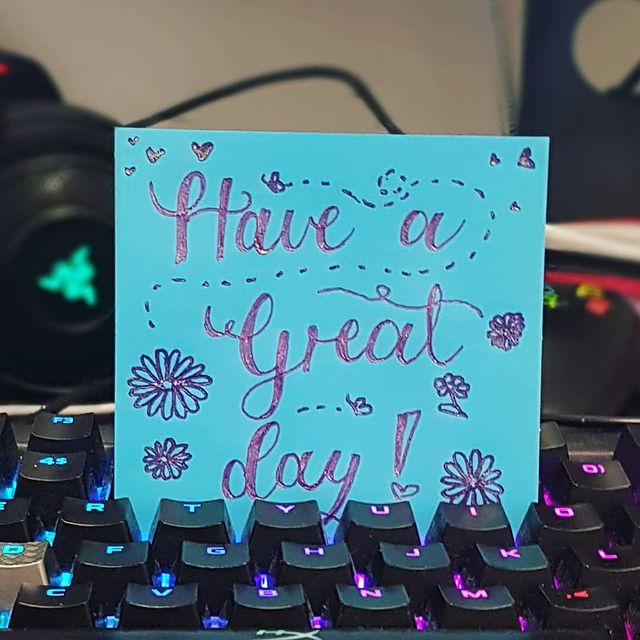 Have a
Great
day!
F3
4$
E R T Y U I O
D F G H J K L
C V B N M